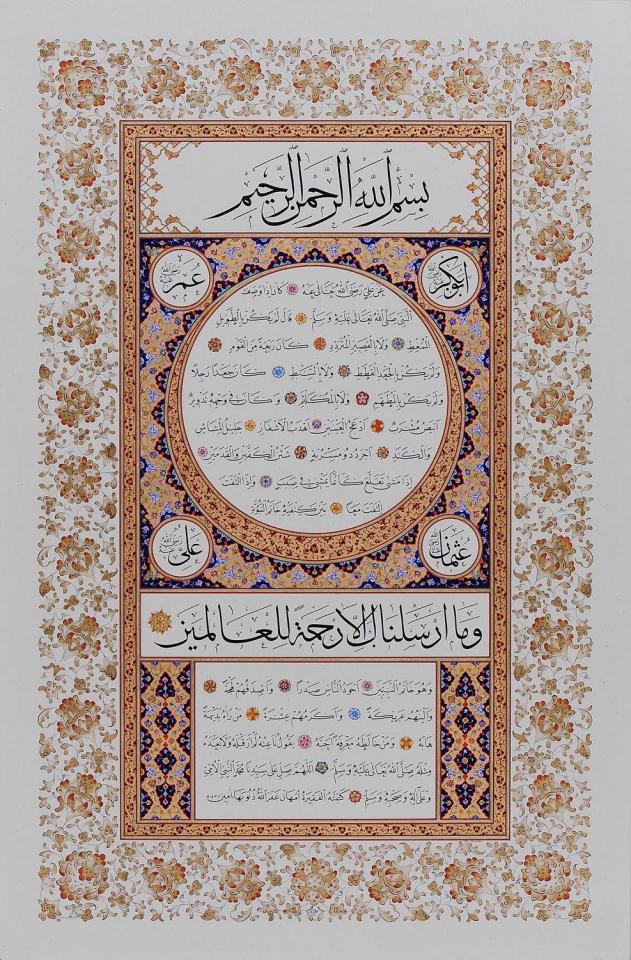 بسم الله الرحمن الرحيم
ابو بكر رضي الله عنه
عمر رضي الله عنه
عن علي رضي الله تعالى عنه كان اذا وصف
النبي صلى الله تعالى عليه وسلم قال لم يكن بالطويل
الممغط ولا بالقصير المتردد كان ربعة من القوم
ولم يكن بالجعد القطط ولا بالسبط كان جعدا رجلا
ولم يكن بالمطهم ولا بالمكلثم وكان في وجهه تدوير
ابيض مشرب ادعج العينين اهدب الاشفار جليل المشاش
والكتد اجرد ذو مسربة شثن الكفين والقدمين
اذا مشى تقلع كانما يمشي في صبب واذا التفت
التفت معا بين كتفيه خاتم النبوة
عثمان رضي الله عنه
علي رضي الله عنه
وما ارسلناك الا رحمة للعالمين
وهو خاتم النبيين اجود الناس صدرا واصدقهم لهجة
والينهم عريكة واكرمهم عشرة من رآه بديهة
هابه ومن خالطه معرفة احبه يقول ناعته لم ار قبله ولا بعده
مثله صلى الله تعالى عليه وسلم اللهم صل على سيدنا محمد النبي الامي
وعلى اله وصحبه وسلم كتبته الفقيرة غفر الله ذنوبها امين